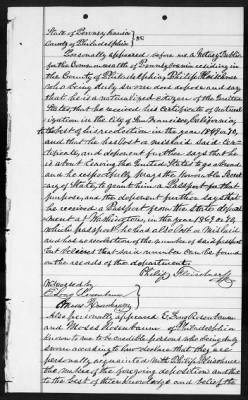 State of Pennsylvania
County of Philadelphia } SS
Personally appeared before me a Notary Public
for the Commonwealth of Pennsylvania residing in
the County of Philadelphia, Philip
who being duly sworn does depose and say
that he is a naturalized citizen of the United
States that he received his certificate of natural-
ization in the City of San Francisco, California,
to the best of his recollection in the year 1869 or 70,
and that he has lost or mislaid said Cer-
tificate, and deponent further says that he
is about leaving the United States to go abroad
and he respectfully prays the Honorable Secre-
ary of State, to grant him a Passport for that
purpose, and the deponent further says that
he received a Passport from the State depart-
ment at Washington, in the year 1869 or 70,
which passport he has also lost or mislaid
and has no recollection of the number of said passport
but believes that said number can be found
on the records of the department
Philip
Witnessed by
Rosenbaum
Moses Rosenbaum
Also personally appeared Rosenbaum
and Moses Rosenbaum of Philadelphia
known to me to be credible persons who being duly
sworn according to law declare that they are
personally acquainted with Philip
the maker of the foregoing deposition and that
to the best of their knowledge and belief the